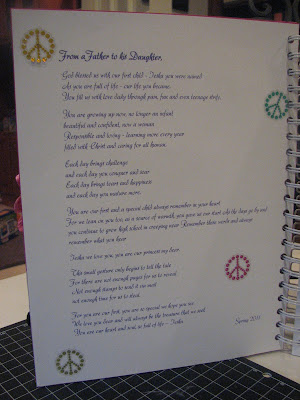 From a Father to his Daughter.
God blessed us with our first child - Tesha you were named
As you are full of life - our life you became.
You fill us with love daily through pain, fun and even teenage strife.
You are growing up now, no longer an infant
beautiful and confident, now a woman.
Responsible and loving - learning more every year
filled with Christ and caring for all human.
Each day brings challenge
and each you conquer and soar
Each day brings tears and happiness
and each you mature more.
You are our first and a special child always remember in your heart
For we lean on you too, as a source of warmth, you gave us our start
As the days go by and
you continue to grow high school is creeping near
Remember these words and always
remember what you hear
Tesha we love you, you are our precious
This small gesture only begins to tell the tale
For there are not enough pages for us to record
Not enough stamps to send it via mail
not enough time for us to steal.
For you are our first, you are so special we hope you see
We love you dear and will always be the treasure that we seek
You are our heart and soul, so full of life - Tesha
Spring 2011